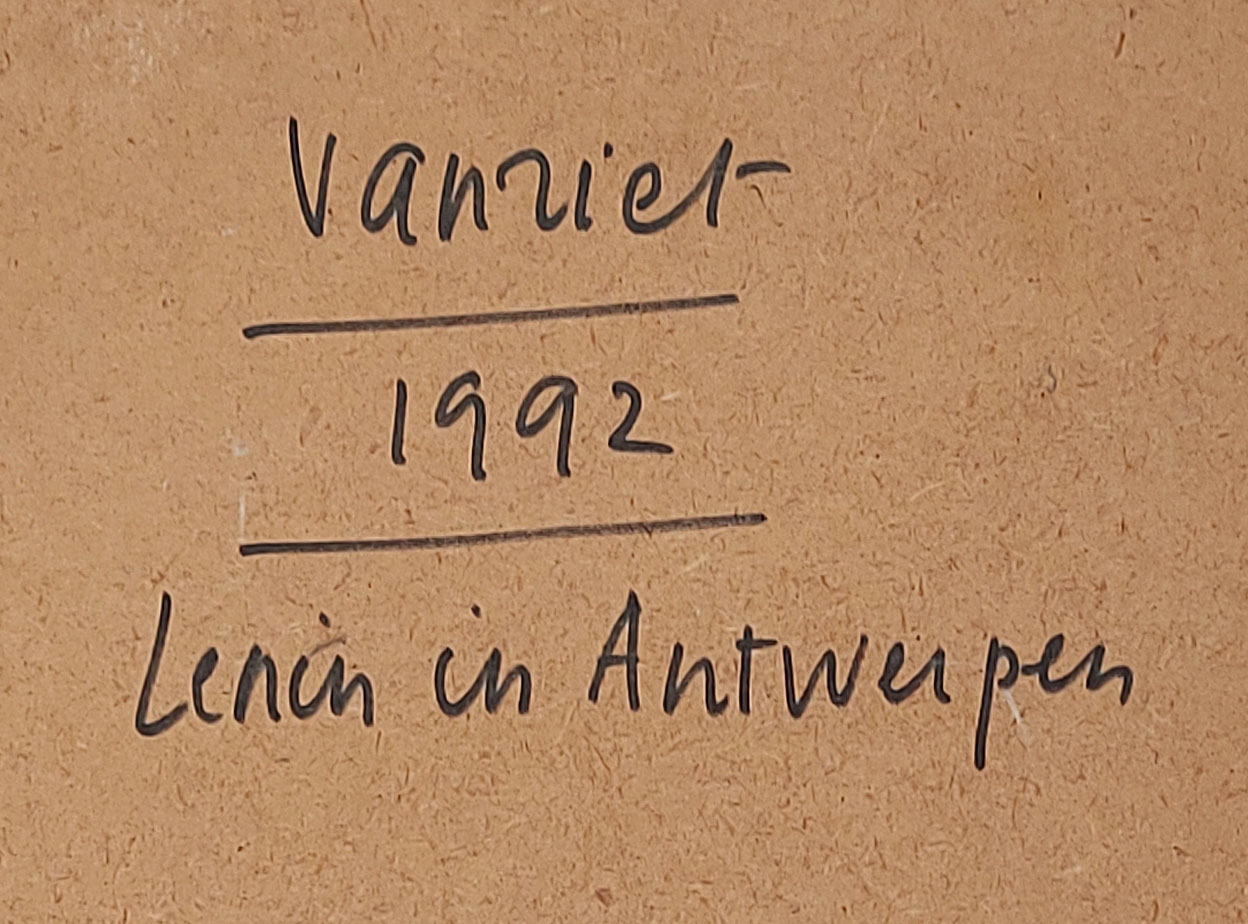 Vanriet
1992
Lenin in Antwerpen